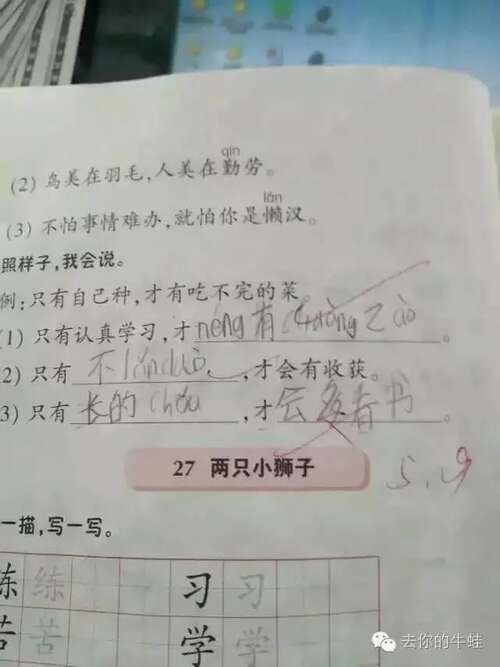 qín
(2) 鸟美在羽毛,人美在勤劳。
lǎn
(3) 不怕事情难办,就怕你是懒汉。
照样子,我会说。
例:只有自己种,才有吃不完的菜。
1) 只有认真学习,才néng有chuàng zào。
2) 只有不lǎn duò,才会有收获。
3) 只有长的chǒu,才会多看书。
27 两只小狮子
一描,写一写。
练 练 习 习
苦 苦 学 学
5.9
去你的牛蛙